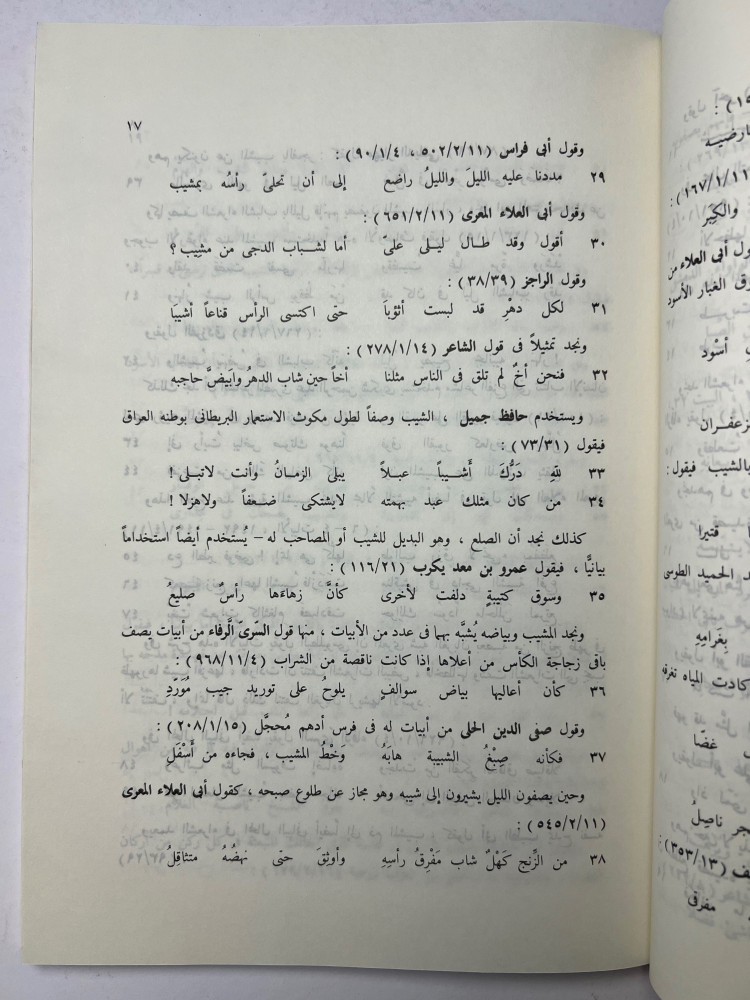 ١٧
وقول أبى فراس (٥٠٢/٢/١١ ، ٩٠/١/٤) :
٢٩ مددنا عليه الليلَ والليلُ راضع إلى أن تحلىّ رأسُه بمشيب
وقول أبى العلاء المعرى (٦٥١/٢/١١) :
٣٠ أقول وقد طال ليلى علىّ أما لشباب الدجى من مشِيب ؟
وقول الراجز (٣٨/٣٩) :
٣١ لكل دهْرِ قد لبست أثوُباَ حتى اكتسى الرأس قناعاً أشيبَا
ونجد تمثيلاً فى قول الشاعر (٢٧٨/١/١٤) :
٣٢ فنحن أخٌ لم تلق فى الناس مثلنا أخاً حين شاب الدهرُ وابَيضَّ حاجبه
ويستخدم حافظ جميل ، الشيب وصفاً لطول مكوث الاستعمار البريطانى بوطنه العراق
فيقول (٧٣/٣١) :
٣٣ للهِ دَرُّكَ أشَيباً عبلاً يبلى الزمانُ وأنت لاتبلى !
٣٤ من كان مثلك عبد بهمته لايشتكى ضعفاً ولاهزلا !
كذلك نجد أن الصلع ، وهو البديل للشيب أو المصاحب له – يُستخدم أيضاً استخداماً
بيانيًّا ، فيقول عمرو بن معد يكرب (١١٦/٢١) :
٣٥ وسوق كتيبةٍ دلفت لأخرى كأنَّ زهاءَها رأسٌ صليعُ
ونجد المشيب وبياضه يُشبَّه بهما فى عدد من الأبيات ، منها قول السَرىّ الَّرفاء من أبيات يصف
باقى زجاجة الكأس من أعلاها إذا كانت ناقصة من الشراب (٩٦٨/١١/٤) :
٣٦ كأن أعاليها بياض سوالفٍ يلوحُ على توريد جيب مُوَرّدِ
وقول صفى الدين الحلى من أبيات له فى فرس أدهم مُحجَّل (٢٠٨/١/١٥) :
٣٧ فكأنه صِبْغُ الشبيبة هابَهُ وَخْطُ المشيب ، فجاءه من أسْفَلِ
وحين يصفون الليل يشيرون إلى شيبه وهو مجاز عن طلوع صبحه ، كقول أبى العلاء المعرى
(٥٤٥/٢/١١) :
٣٨ من الزِّنج كَهْلٌ شاب مَفْرِقُ رأسِهِ وأوثِقَ حتى نهضُهُ متثاقِلُ
ارضيه
(١٦٧/١/١١) :
والكِيْرِ
أبى العلاء من
ق الغبار الأسود
أسْود
زعفـران
بالشيب فيقول :
قتيرا
د الحميد الطوسى
بِغَرامِهِ
كادت المياه تغرقه
غضّا
جر ناصِلُ
(٣٥٣/١٣) :
مفرق